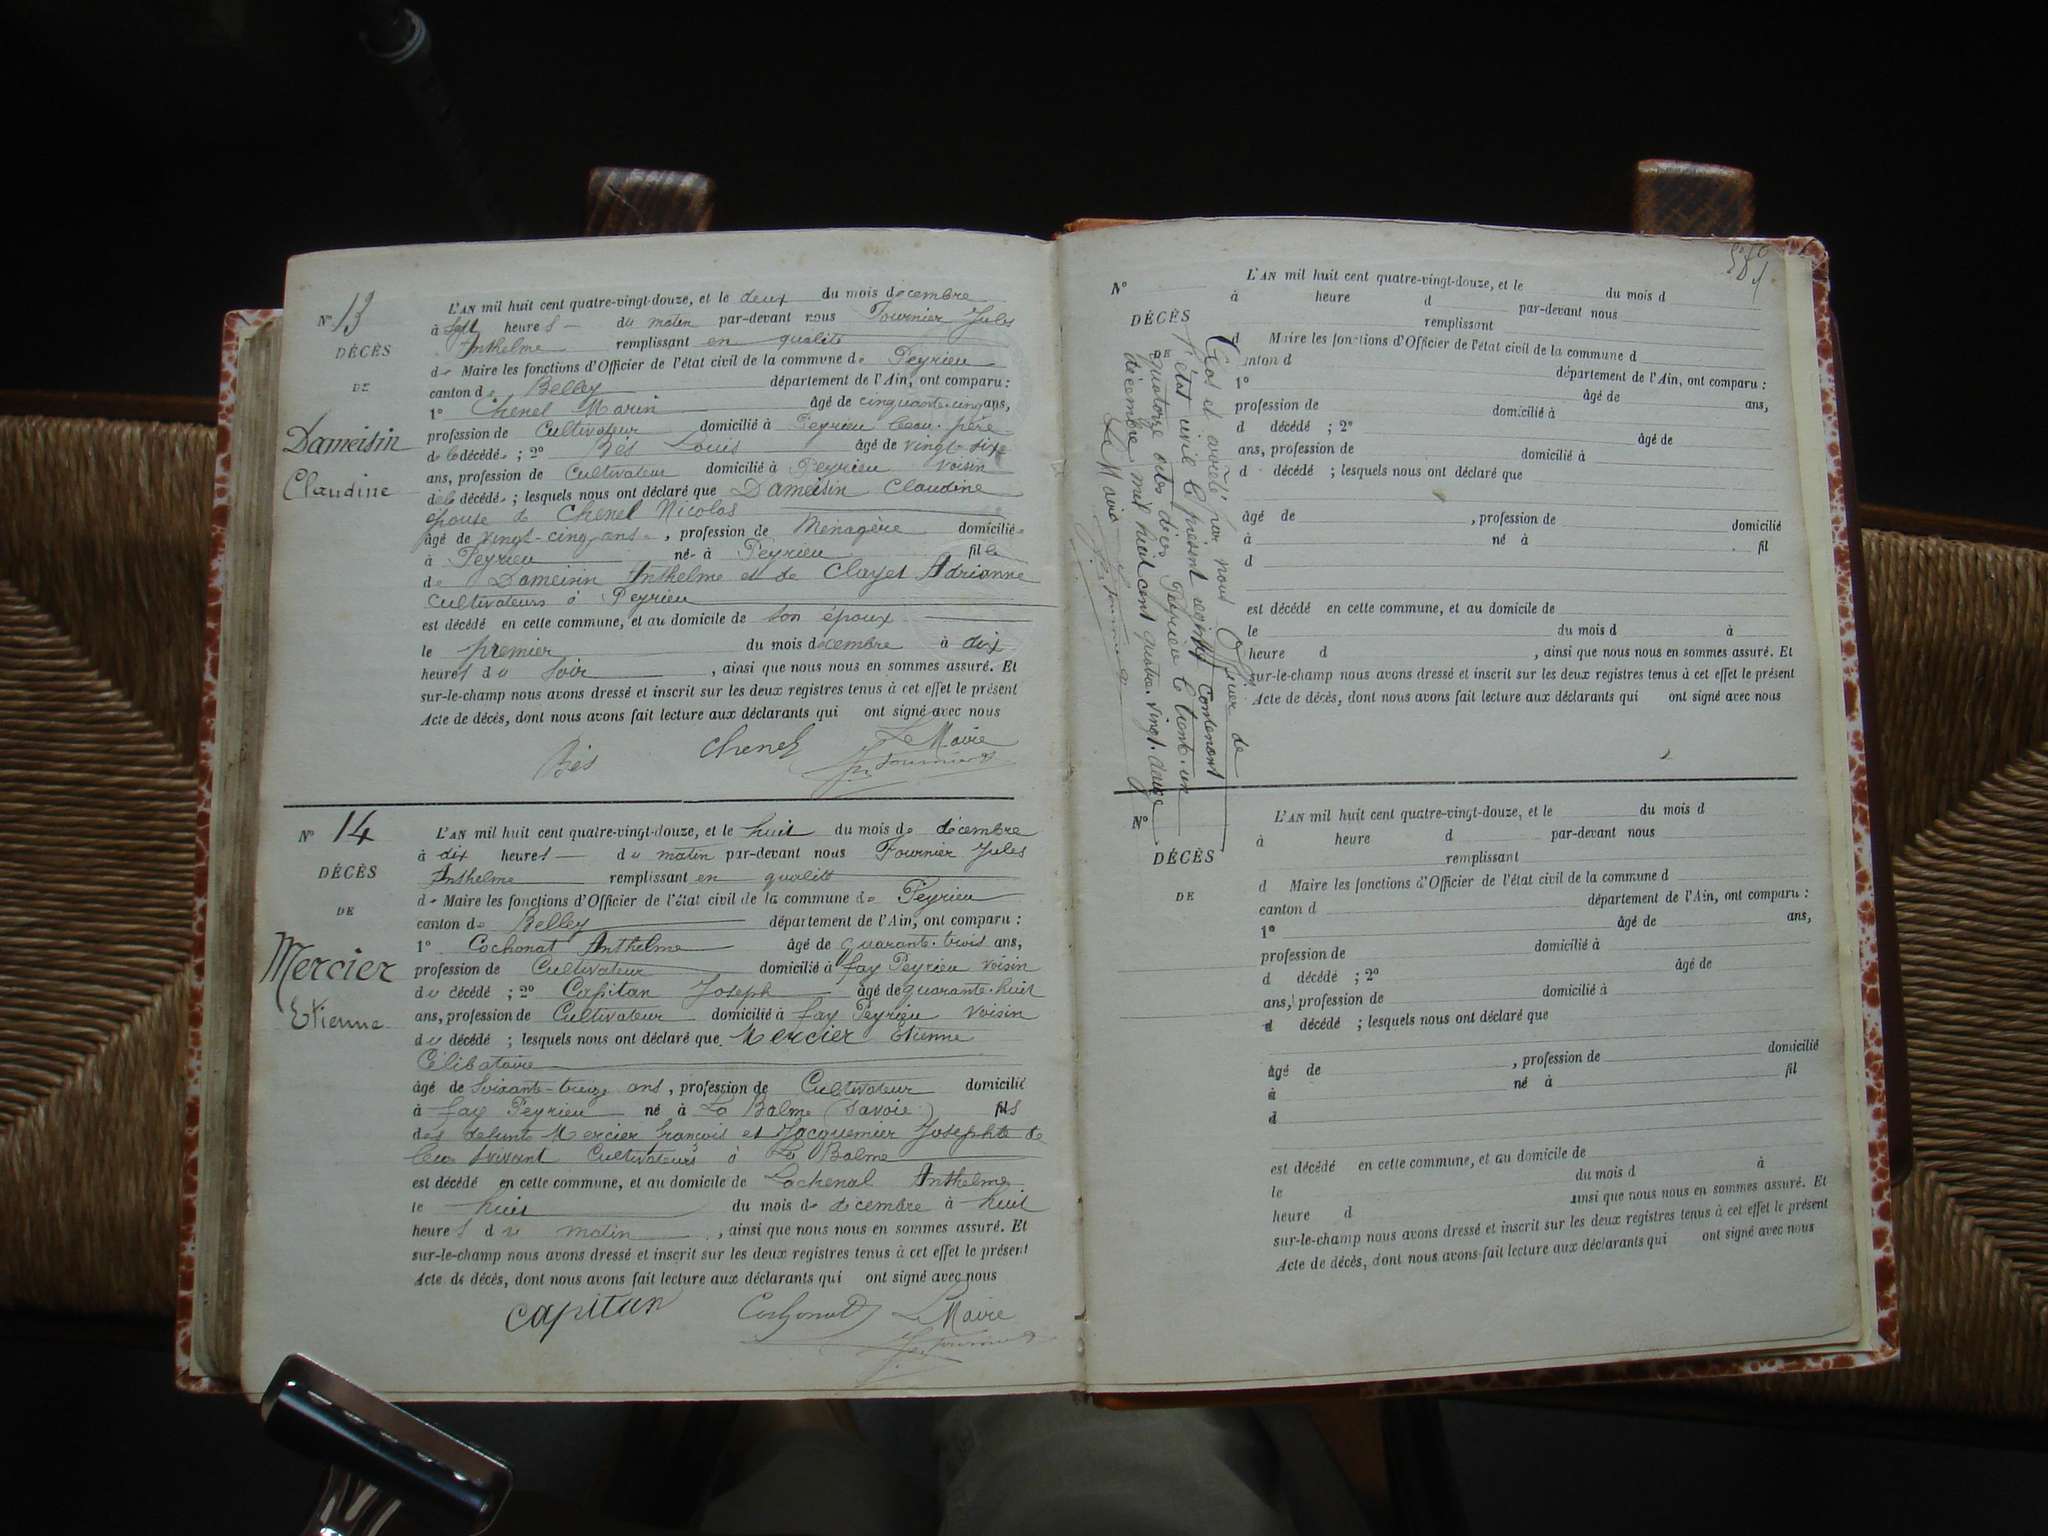 N° 13
DÉCÈS
DE
Dameisin
Claudine
L'AN mil huit cent quatre-vingt-douze, et le deux du mois décembre
à sept heures du matin par-devant nous Fournier Jules
Anthelme remplissant en qualité
de Maire les fonctions d'Officier de l'état civil de la commune de Peyrieu
canton de Belley département de l'Ain, ont comparu :
1° Chenel Marin âgé de cinquante-cinq ans,
profession de Cultivateur domicilié à Peyrieu beau-père
de la décédée ; 2° Bés Louis âgé de vingt-six
ans, profession de Cultivateur domicilié à Peyrieu voisin
de la décédée ; lesquels nous ont déclaré que Dameisin Claudine
épouse de Chenel Nicolas
âgé de vingt-cinq ans, profession de Ménagère domiciliée
à Peyrieu née à Peyrieu fille
de Dameisin Anthelme et de Clayet Adrianne
cultivateurs à Peyrieu
est décédé en cette commune, et au domicile de son époux
le premier du mois décembre à dix
heures du soir, ainsi que nous nous en sommes assuré. Et
sur-le-champ nous avons dressé et inscrit sur les deux registres tenus à cet effet le présent
Acte de décès, dont nous avons fait lecture aux déclarants qui ont signé avec nous
Bés Chenel Le Maire
Fournier
N° 14
DÉCÈS
DE
Mercier
Etienne
L'AN mil huit cent quatre-vingt-douze, et le huit du mois de décembre
à dix heures du matin par-devant nous Fournier Jules
Anthelme remplissant en qualité
de Maire les fonctions d'Officier de l'état civil de la commune de Peyrieu
canton de Belley département de l'Ain, ont comparu :
1° Cochonat Anthelme âgé de quarante-trois ans,
profession de Cultivateur domicilié à fay Peyrieu voisin
du décédé ; 2° Capitan Joseph âgé de quarante-huit
ans, profession de Cultivateur domicilié à fay Peyrieu voisin
du décédé ; lesquels nous ont déclaré que Mercier Etienne
Célibataire
âgé de soixante-treize ans, profession de Cultivateur domicilié
à fay Peyrieu né à La Balme (Savoie) fils
des défunts Mercier françois et Jacquemier Josephte de
leur vivant Cultivateurs à La Balme
est décédé en cette commune, et au domicile de Lochenal Anthelme
le huit du mois de décembre à huit
heures du matin, ainsi que nous nous en sommes assuré. Et
sur-le-champ nous avons dressé et inscrit sur les deux registres tenus à cet effet le présent
Acte de décès, dont nous avons fait lecture aux déclarants qui ont signé avec nous
Capitan Cochonat Le Maire
Fournier
N°
DÉCÈS
Clos et arrêté par nous Officier de
l'état civil le présent registre contenant
quatorze actes de décès Peyrieu le trente-un
décembre mil huit cent quatre-vingt-douze
Le Maire
Fournier
L'AN mil huit cent quatre-vingt-douze, et le du mois d
à heure d par-devant nous
remplissant
d Maire les fonctions d'Officier de l'état civil de la commune d
canton d département de l'Ain, ont comparu :
1° âgé de ans,
profession de domicilié à
d décédé ; 2° âgé de
ans, profession de domicilié à
d décédé ; lesquels nous ont déclaré que
âgé de , profession de domicilié
à né à fil
d
est décédé en cette commune, et au domicile de
le du mois d à
heure d , ainsi que nous nous en sommes assuré. Et
sur-le-champ nous avons dressé et inscrit sur les deux registres tenus à cet effet le présent
Acte de décès, dont nous avons fait lecture aux déclarants qui ont signé avec nous
N°
DÉCÈS
DE
L'AN mil huit cent quatre-vingt-douze, et le du mois d
à heure d par-devant nous
remplissant
d Maire les fonctions d'Officier de l'état civil de la commune d
canton d département de l'Ain, ont comparu :
1° âgé de ans,
profession de domicilié à
d décédé ; 2° âgé de
ans, profession de domicilié à
d décédé ; lesquels nous ont déclaré que
âgé de , profession de domicilié
à né à fil
d
est décédé en cette commune, et au domicile de
le du mois d à
heure d ainsi que nous nous en sommes assuré. Et
sur-le-champ nous avons dressé et inscrit sur les deux registres tenus à cet effet le présent
Acte de décès, dont nous avons fait lecture aux déclarants qui ont signé avec nous